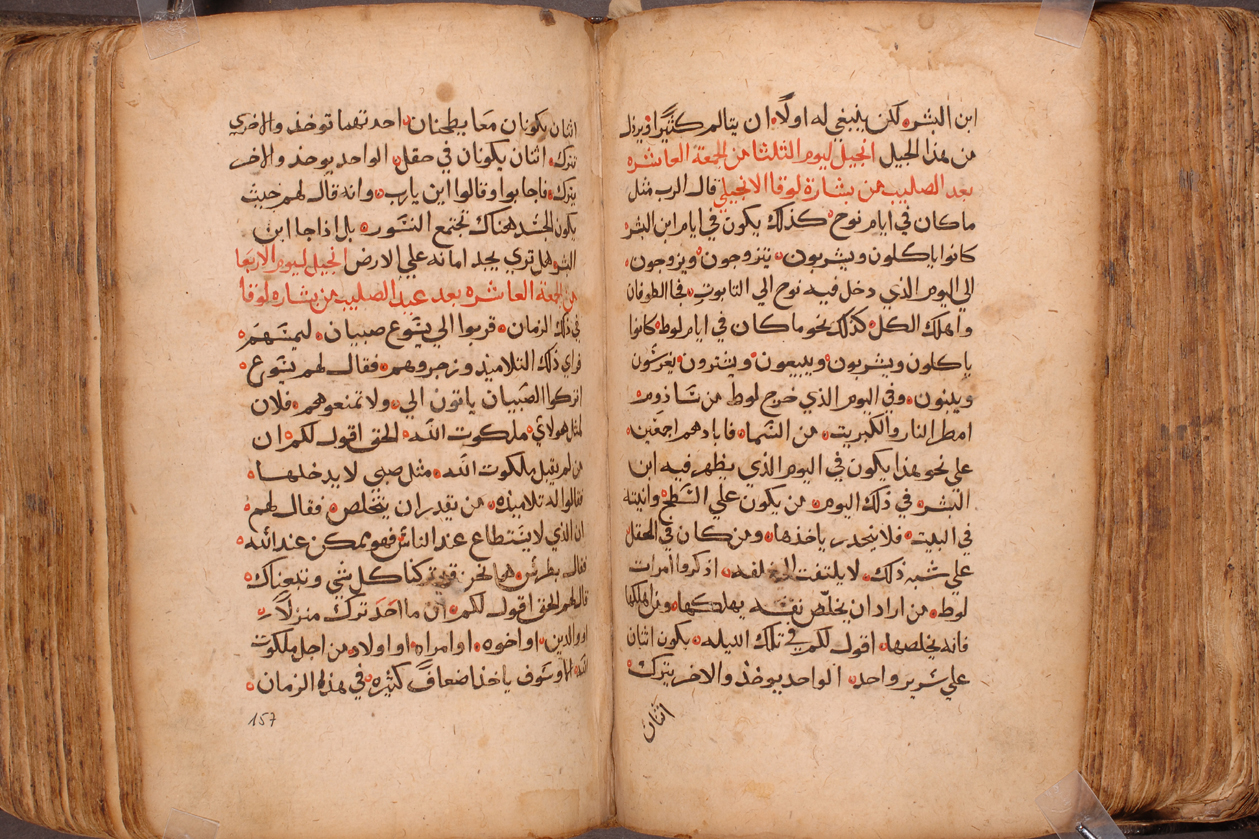 ابن البشر لكن ينبغي له اولًا ان يتالم كثيرًا ويرذل
من هذا الجيل انجيل ليوم الثلثا من الجمعة العاشره
بعد الصليب من بشارة لوقا الانجيلي قال الرب مثل
ما كان في ايام نوح كذلك يكون في ايام ابن البشر
كانوا ياكلون ويشربون يتزوجون ويزوجون
الي اليوم الذي دخل فيه نوح الي التابوت فجا الطوفان
واهلك الكل كذلك نحو ما كان في ايام لوط كانوا
ياكلون ويشربون ويبيعون ويشترون يغرسون
ويبنون وفي اليوم الذي خرج لوط من سادوم
امطر النار والكبريت من السما فابادهم اجمعين
علي نحو هذا يكون في اليوم الذي يظهر فيه ابن
البشر في ذلك اليوم من يكون علي السطح وانيته
في البيت فلا ينحدر ياخذها ومن كان في الحقل
علي شبه ذلك لا يلتفت الي خلفه اذكروا امرات
لوط من اراد ان يخلص نفسه يهلكها ومن اهلكها
فانه يخلصها اقول لكم في تلك الليله يكون اثنان
علي سرير واحد الواحد يوخذ والاخر يترك
اثنان
اثنان يكونان معا يطحنان احدتهما توخذ والاخري
تترك اثنان يكونان في حقل الواحد يوخذ والاخر
يترك فاجابوا وقالوا اين يارب وانه قال لهم حيث
يكون الجسد هناك تجتمع النسور بل اذا جا ابن
البشر هل تري يجد امانه علي الارض انجيل ليوم الاربعا
من الجمعة العاشره بعد عيد الصليب من بشاره لوقا
في ذلك الزمان قربوا الي يسوع صبيان ليمسهم
فراي ذلك التلاميذ وزجروهم فقال لهم يسوع
اتركوا الصبيان ياتون الي ولا تمنعوهم فلان
لمثل هولاي ملكوت الله الحق اقول لكم ان
من لم يقبل ملكوت الله مثل صبي لا يدخلها
فقالوا له تلاميذه من يقدر ان يتخلص فقال لهم
ان الذي لا يستطاع عند الناس فهو ممكن عند الله
فقال بطرس ها نحن تركنا كل شي وتبعناك
قال لهم الحق اقول لكم ان ما احد ترك منزلًا
او والدين او اخوه او امراه او اولاد من اجل ملكوت
الله الا وسوف ياخذ اضعاف كثيره في هذا الزمان
157